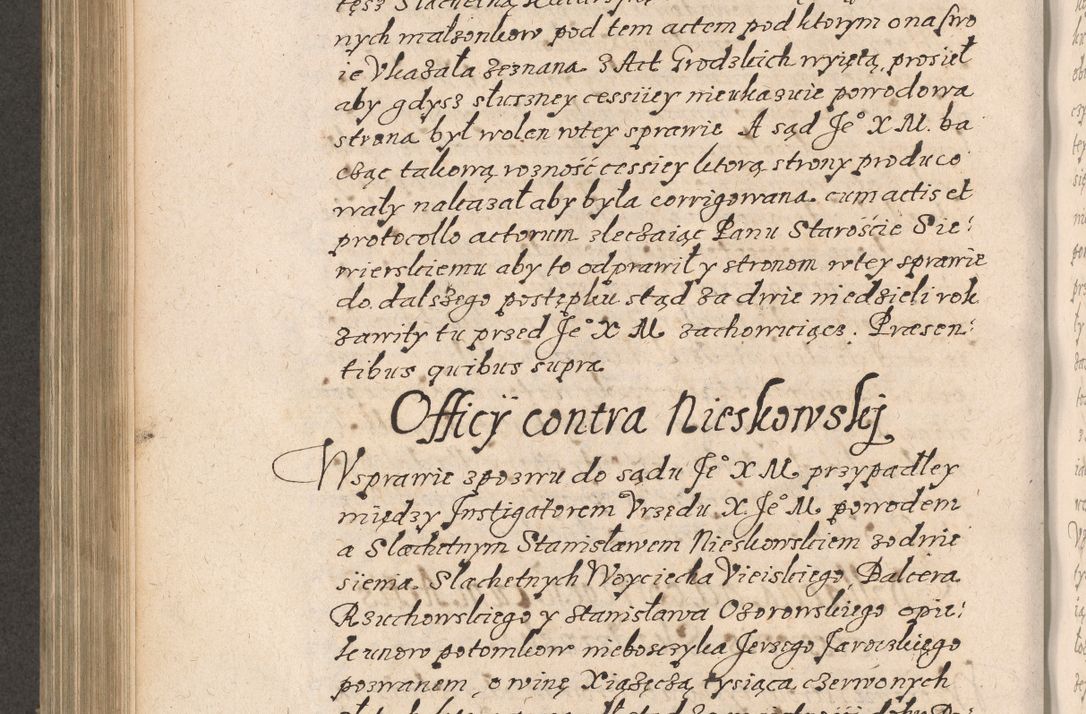 nych małzonkow pod tem actem pod ktorym ona swo
ie Vkazała zeznana z Act Grodzkich wyiętą, prosieł
aby gdysz słuszney cessiiey nieukazuie powodowa
strona był wolen wtey sprawie A sąd Je° X M. ba
cząc takową roznośċ cessiey ktorą strony produco
wały nakazał aby była corrigowana cum actis et
protocollo actorum zleczaiąc Panu Starośċie Sie:
wierskiemu aby to odprawił y stronom wtey sprawie
do dalszego postępku stąd za dwie niedzieli rok
zawity tu przed Je° X M. zachowuiącz. Præsen:
tibus quibus supra
Officÿ contra Nieskowskj
Wsprawie zpozwu do sądu Je° X M. przypadłey
między Instigatorem Vrzędu X. Je° M. powodem
a Slachetnym Stanisławem Nieskowskiem zodnie
sienia Slachetnych Woyciecha Vieiskiego Balcera
Rzuchowskiego y Stanisława Ozorowskiego opie:
kunow potomkow nieboszczyka Jerzego Jarockiego
pozwanem, o winę Xiążęczą tysiąca czerwonych